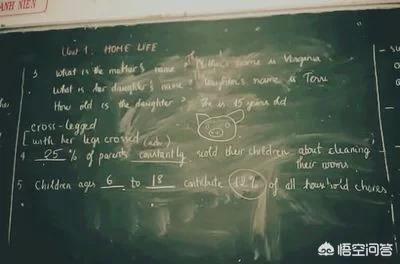 ANH NIÊN
Unit 1. HOME LIFE
3 What is the mother's name? The Mother's name is Virginia
What is her daughter's name? The daughter's name is Terri
How old is the daughter? She is 15 years old
cross-legged
[ with her legs crossed (adv)
4 25 % of parents constantly scold their children about cleaning
their rooms.
5 Children ages 6 to 18 contribute 12% of all household chores
悟空问答